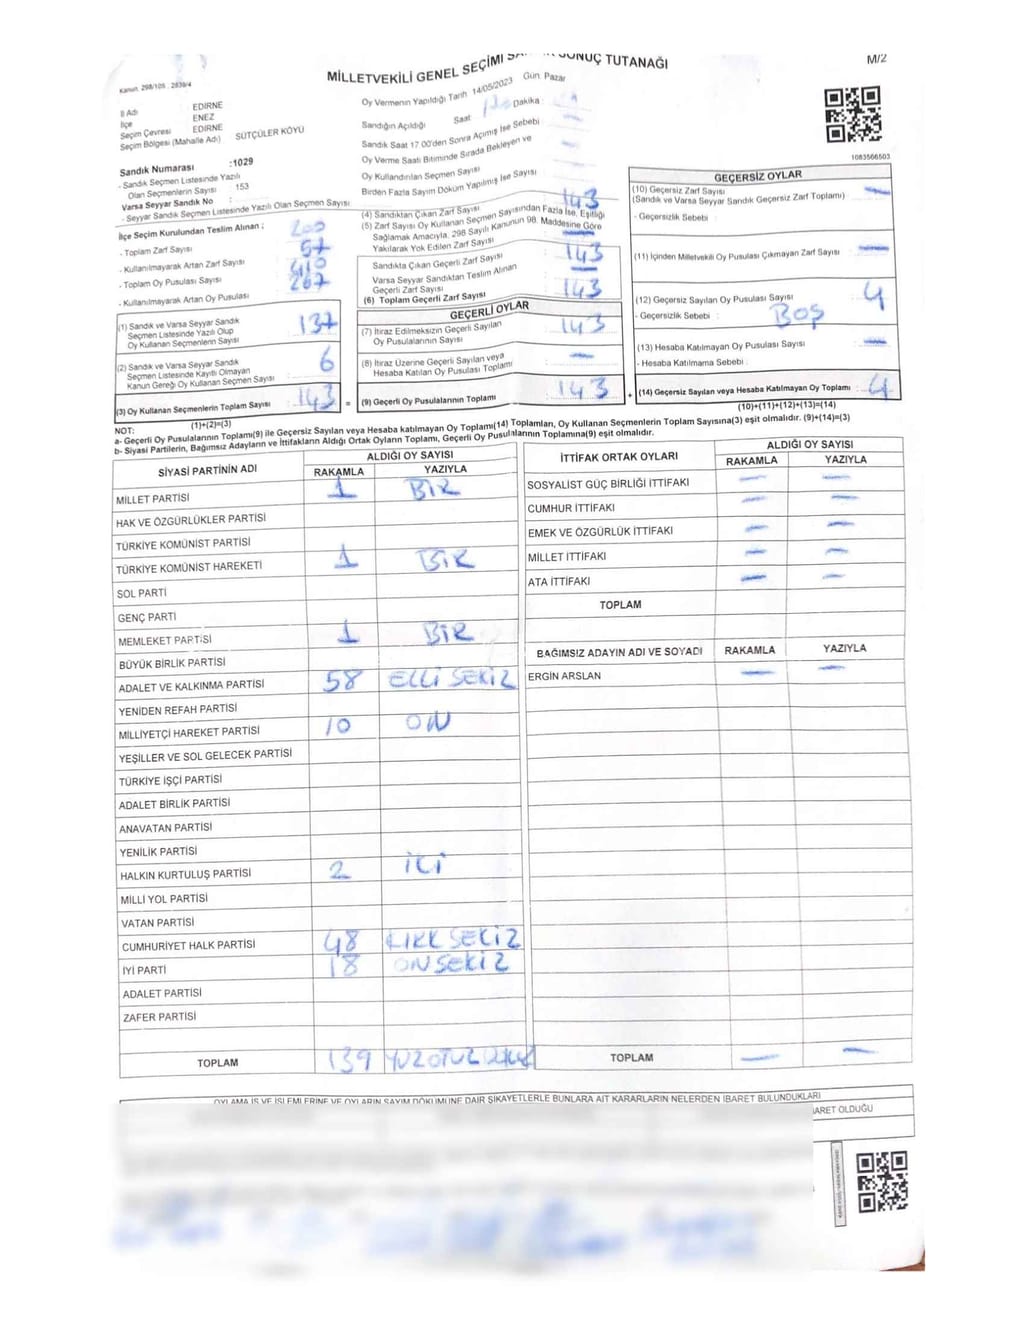 MİLLETVEKİLİ GENEL SEÇİMİ SONUÇ TUTANAĞI
M/2
Kanun. 298/105 , 2839/4
İl Adı : EDİRNE
İlçe ENEZ
Seçim Çevresi EDİRNE
Seçim Bölgesi (Mahalle Adı) SÜTÇÜLER KÖYÜ
Sandık Numarası :1029
- Sandık Seçmen Listesinde Yazılı
Olan Seçmenlerin Sayısı : 153
Varsa Seyyar Sandık No :
- Seyyar Sandık Seçmen Listesinde Yazılı Olan Seçmen Sayısı
İlçe Seçim Kurulundan Teslim Alınan ;
- Toplam Zarf Sayısı 200
- Kullanılmayarak Artan Zarf Sayısı 57
- Toplam Oy Pusulası Sayısı
- Kullanılmayarak Artan Oy Pusulası 267
(1) Sandık ve Varsa Seyyar Sandık
Seçmen Listesinde Yazılı Olup
Oy Kullanan Seçmenlerin Sayısı 137
(2) Sandık ve Varsa Seyyar Sandık
Seçmen Listesinde Kayıtlı Olmayan
Kanun Gereği Oy Kullanan Seçmen Sayısı 6
(3) Oy Kullanan Seçmenlerin Toplam Sayısı 143 =
(1)+(2)=(3)
Oy Vermenin Yapıldığı Tarih 14/05/2023 Gün: Pazar
Sandığın Açıldığı Saat Dakika
Sandık Saat 17.00'den Sonra Açılmış İse Sebebi
Oy Verme Saati Bitiminde Sırada Bekleyen ve
Oy Kullandırılan Seçmen Sayısı
Birden Fazla Sayım Döküm Yapılmış İse Sayısı
(4) Sandıktan Çıkan Zarf Sayısı 143
(5) Zarf Sayısı Oy Kullanan Seçmen Sayısından Fazla İse, Eşitliği
Sağlamak Amacıyla, 298 Sayılı Kanunun 98. Maddesine Göre
Yakılarak Yok Edilen Zarf Sayısı —
Sandıkta Çıkan Geçerli Zarf Sayısı 143
Varsa Seyyar Sandıktan Teslim Alınan
Geçerli Zarf Sayısı —
(6) Toplam Geçerli Zarf Sayısı 143
GEÇERLİ OYLAR
(7) İtiraz Edilmeksizin Geçerli Sayılan
Oy Pusulalarının Sayısı 143
(8) İtiraz Üzerine Geçerli Sayılan veya
Hesaba Katılan Oy Pusulası Toplamı —
(9) Geçerli Oy Pusulalarının Toplamı 143 +
1083566503
GEÇERSİZ OYLAR
(10) Geçersiz Zarf Sayısı
(Sandık ve Varsa Seyyar Sandık Geçersiz Zarf Toplamı) —
- Geçersizlik Sebebi :
(11) İçinden Milletvekili Oy Pusulası Çıkmayan Zarf Sayısı —
(12) Geçersiz Sayılan Oy Pusulası Sayısı 4
- Geçersizlik Sebebi : BOŞ
(13) Hesaba Katılmayan Oy Pusulası Sayısı —
- Hesaba Katılmama Sebebi :
(14) Geçersiz Sayılan veya Hesaba Katılmayan Oy Toplamı 4
(10)+(11)+(12)+(13)=(14)
NOT:
a- Geçerli Oy Pusulalarının Toplamı(9) ile Geçersiz Sayılan veya Hesaba katılmayan Oy Toplamı(14) Toplamları, Oy Kullanan Seçmenlerin Toplam Sayısına(3) eşit olmalıdır. (9)+(14)=(3)
b- Siyasi Partilerin, Bağımsız Adayların ve İttifakların Aldığı Ortak Oyların Toplamı, Geçerli Oy Pusulalarının Toplamına(9) eşit olmalıdır.
SİYASİ PARTİNİN ADI ALDIĞI OY SAYISI
RAKAMLA YAZIYLA
MİLLET PARTİSİ 1 BİR
HAK VE ÖZGÜRLÜKLER PARTİSİ
TÜRKİYE KOMÜNİST PARTİSİ
TÜRKİYE KOMÜNİST HAREKETİ 1 BİR
SOL PARTİ
GENÇ PARTİ
MEMLEKET PARTİSİ 1 BİR
BÜYÜK BİRLİK PARTİSİ
ADALET VE KALKINMA PARTİSİ 58 ELLİ SEKİZ
YENİDEN REFAH PARTİSİ
MİLLİYETÇİ HAREKET PARTİSİ 10 ON
YEŞİLLER VE SOL GELECEK PARTİSİ
TÜRKİYE İŞÇİ PARTİSİ
ADALET BİRLİK PARTİSİ
ANAVATAN PARTİSİ
YENİLİK PARTİSİ
HALKIN KURTULUŞ PARTİSİ 2 İKİ
MİLLİ YOL PARTİSİ
VATAN PARTİSİ
CUMHURİYET HALK PARTİSİ 48 KIRK SEKİZ
İYİ PARTİ 18 ON SEKİZ
ADALET PARTİSİ
ZAFER PARTİSİ
TOPLAM 139 YÜZ OTUZ DOKUZ
İTTİFAK ORTAK OYLARI ALDIĞI OY SAYISI
RAKAMLA YAZIYLA
SOSYALİST GÜÇ BİRLİĞİ İTTİFAKI — —
CUMHUR İTTİFAKI — —
EMEK VE ÖZGÜRLÜK İTTİFAKI — —
MİLLET İTTİFAKI — —
ATA İTTİFAKI — —
TOPLAM
BAĞIMSIZ ADAYIN ADI VE SOYADI RAKAMLA YAZIYLA
ERGİN ARSLAN — —
TOPLAM — —
OYLAMA İŞ VE İŞLEMLERİNE VE OYLARIN SAYIM DÖKÜMÜNE DAİR ŞİKAYETLERLE BUNLARA AİT KARARLARIN NELERDEN İBARET BULUNDUKLARI
BARET OLDUĞU